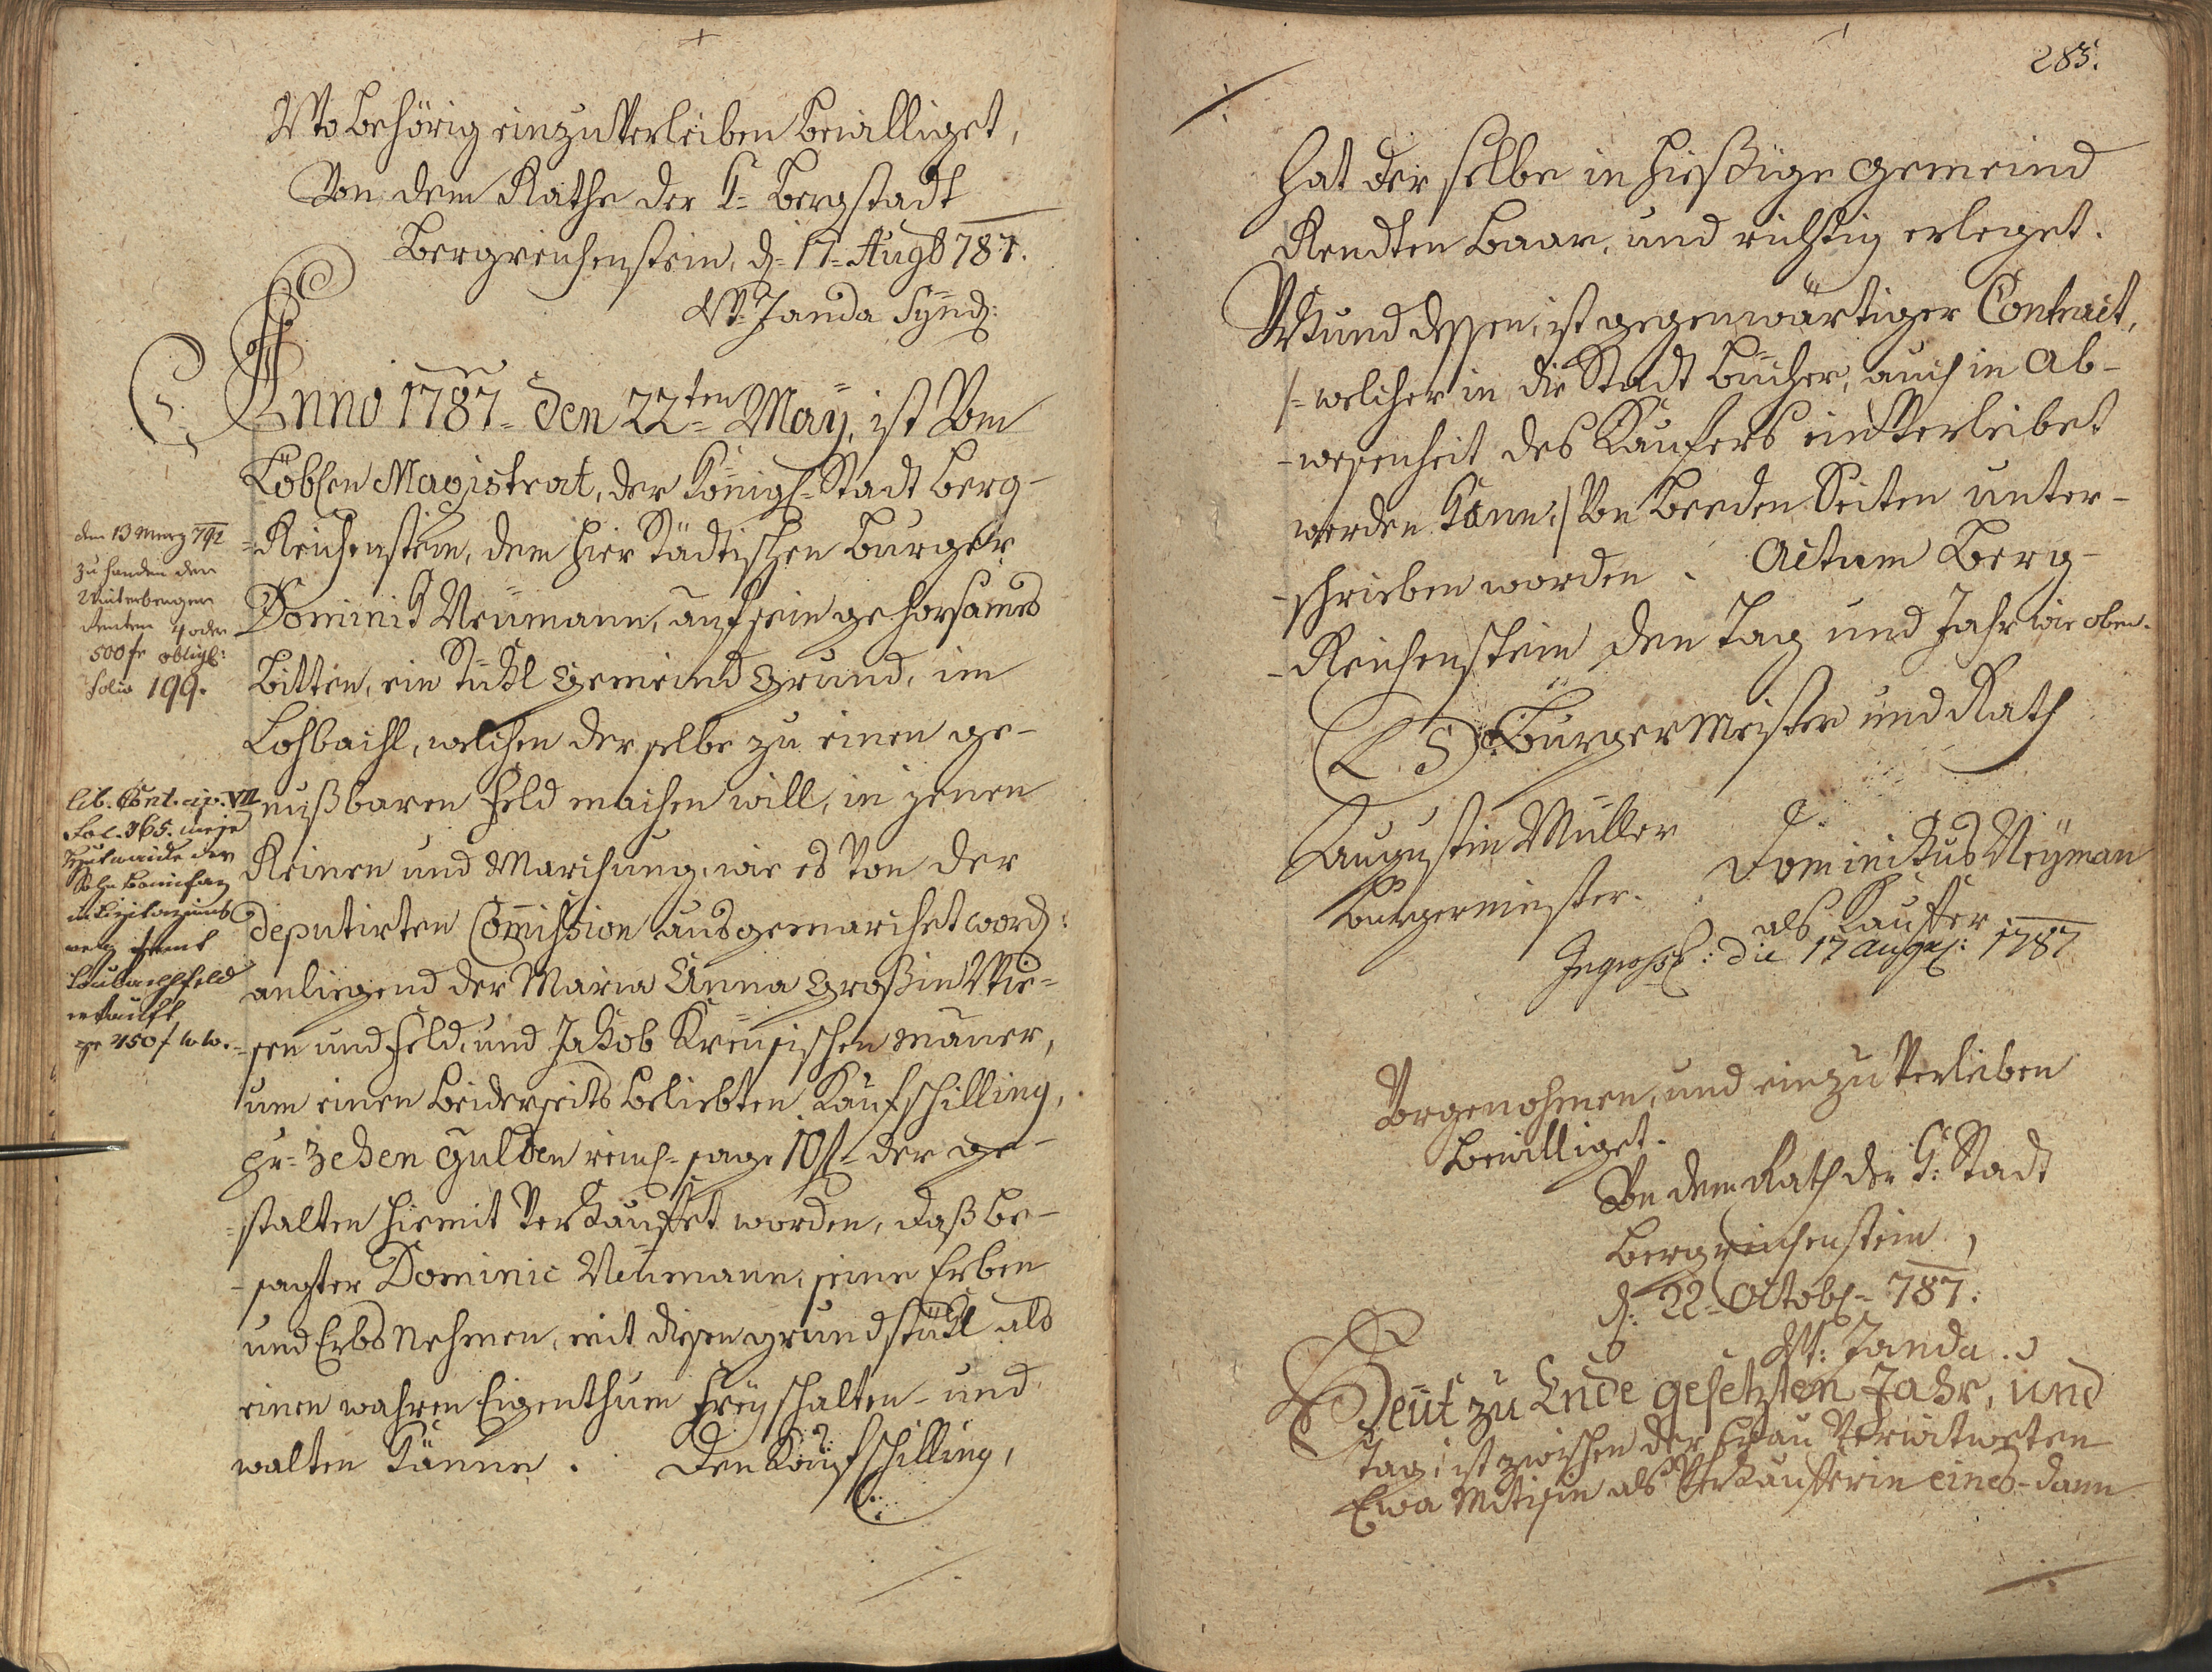 Wo behörig einzuverleiben bewilliget,
Von dem Rathe der K= Bergstadt
Bergreichenstein, d= 17= Augt 787.
Janda Synd:
Anno 1787= den 22ten= May, ist Vom
Löblen Magistrat, der Königl= Stadt Berg-
=Reichenstein, dem hier Städtischen Burger
Dominik Neumann, auf sein gehorsames
Bitten, ein Stükl Gemeind Grund, im
Lohbachl, welchen derselbe zu einen ge-
nußbaren Feld machen will, in jenen
Reinen und Marchung, wie es Von der
deputirten Commission ausgemarchet word:
anliegend der Maria Anna Großin Wie=
=sen und Feld, und Jakob Kreusischen Mauer,
um einen beiderseits beliebten Kaufschilling,
pr= Zehen Gulden reinl= sage 10 f= der ge-
=stalten hiemit Verkauffet worden, daß be-
-sagter Dominic Neumann, seine Erben
und Erbs Nehmen, mit diesen grundstükl als
einen wahren Eigenthum freyschalten- und
walten könne. Den Kaufschilling,
den 13 Merz 792
zu handen der
500 fr obligl:
folio 199.
lib. Cont. VII
Fol. 365.
Sohn
samt
Feld
verkauft
pr 450 f W W.
283.
hat der selbe in hießige Gemeind
Rendten Baar, und richtig erleget.
Urkund dessen, ist gegenwärtiger Contract,
/= welcher in die Stadt Bücher, auch in Ab-
-wesenheit des Kaufers einverleibet
werden kann:/ Von beeden Seiten unter-
-schrieben worden. Actum Berg-
-Reichenstein den Tag und Jahr wie oben.
L S Burgermeister und Rath
Augustin Müller
burgermeister.
Dominikus Neÿman
als Kauffer
Ingross: die 17 Augus: 1787
Vorgenohmen, und einzuverleiben
bewilliget.
Von dem Rath der K: Stadt
Bergreichenstein,
d: 22= Octobl= 787.
Janda
Heut zu Ende gesetzten Jahr, und
Tag, ist zwischen der Frau Verwitweten
Ewa als Verkaufferin eines- dann